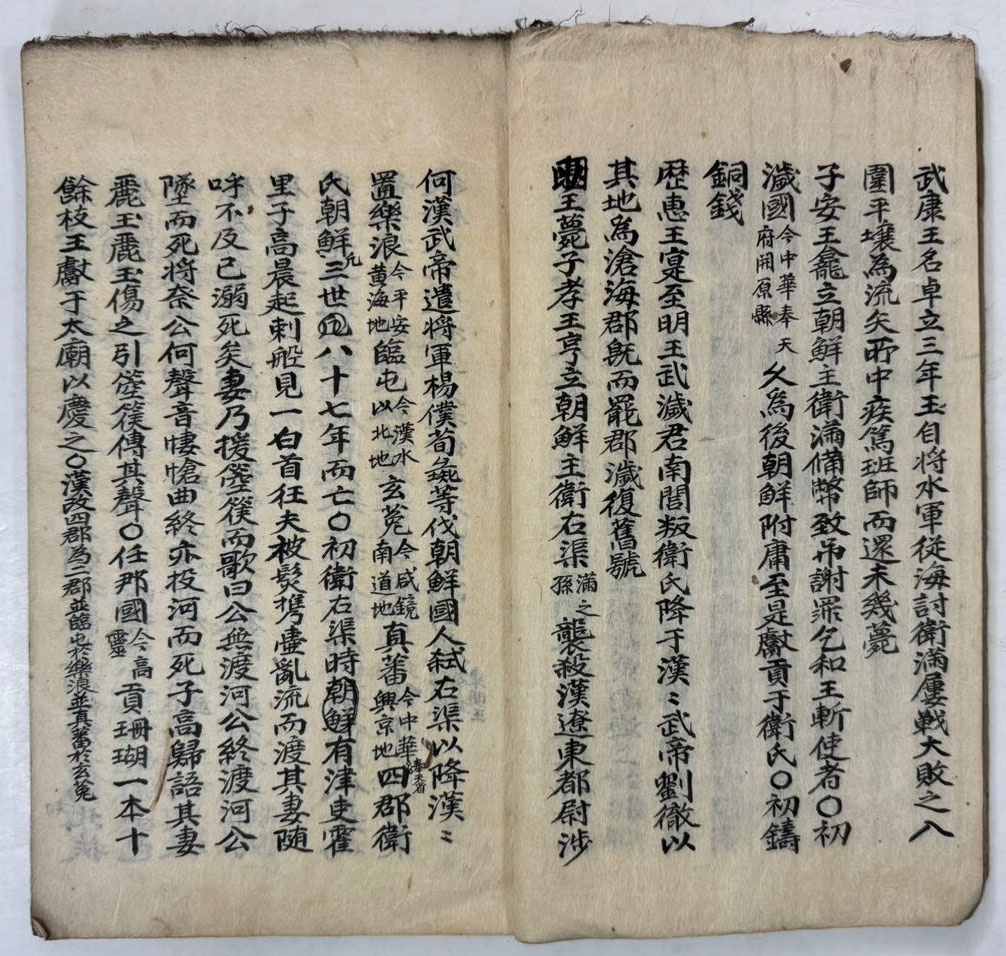 武康王名卓立三年王自將水軍從海討衛滿屢戰大敗之入
圍平壤為流矢所中疾篤班師而還未幾薨
子安王龕立朝鮮主衛滿備幣致吊謝罪乞和王斬使者○初
濊國今中華奉天府開原縣久為後朝鮮附庸至是獻貢于衛氏○初鑄
銅錢
歷惠王寔至明王武濊君南閭叛衛氏降于漢〻武帝劉徹以
其地為滄海郡既而罷郡濊復舊號
王薨子孝王亨立朝鮮主衛右渠滿之孫襲殺漢遼東都尉涉
何漢武帝遣將軍楊僕荀彘等伐朝鮮國人弒右渠以降漢〻
置樂浪今平安黄海地臨屯今漢水以北地玄菟今咸鏡南道地真蕃今中華奉天省興京地四郡衛
氏朝鮮凡三世八十七年而亡○初衛右渠時朝鮮有津吏霍
里子高晨起刺船見一白首狂夫被髮携壺亂流而渡其妻随
呼不及已溺死矣妻乃援箜篌而歌曰公無渡河公終渡河公
墜而死將奈公何聲音悽愴曲終亦投河而死子高歸語其妻
麗玉麗玉傷之引箜篌傳其聲○任那國今高靈貢珊瑚一本十
餘枝王獻于太廟以慶之○漢改四郡為二郡並臨屯於樂浪並真蕃於玄菟